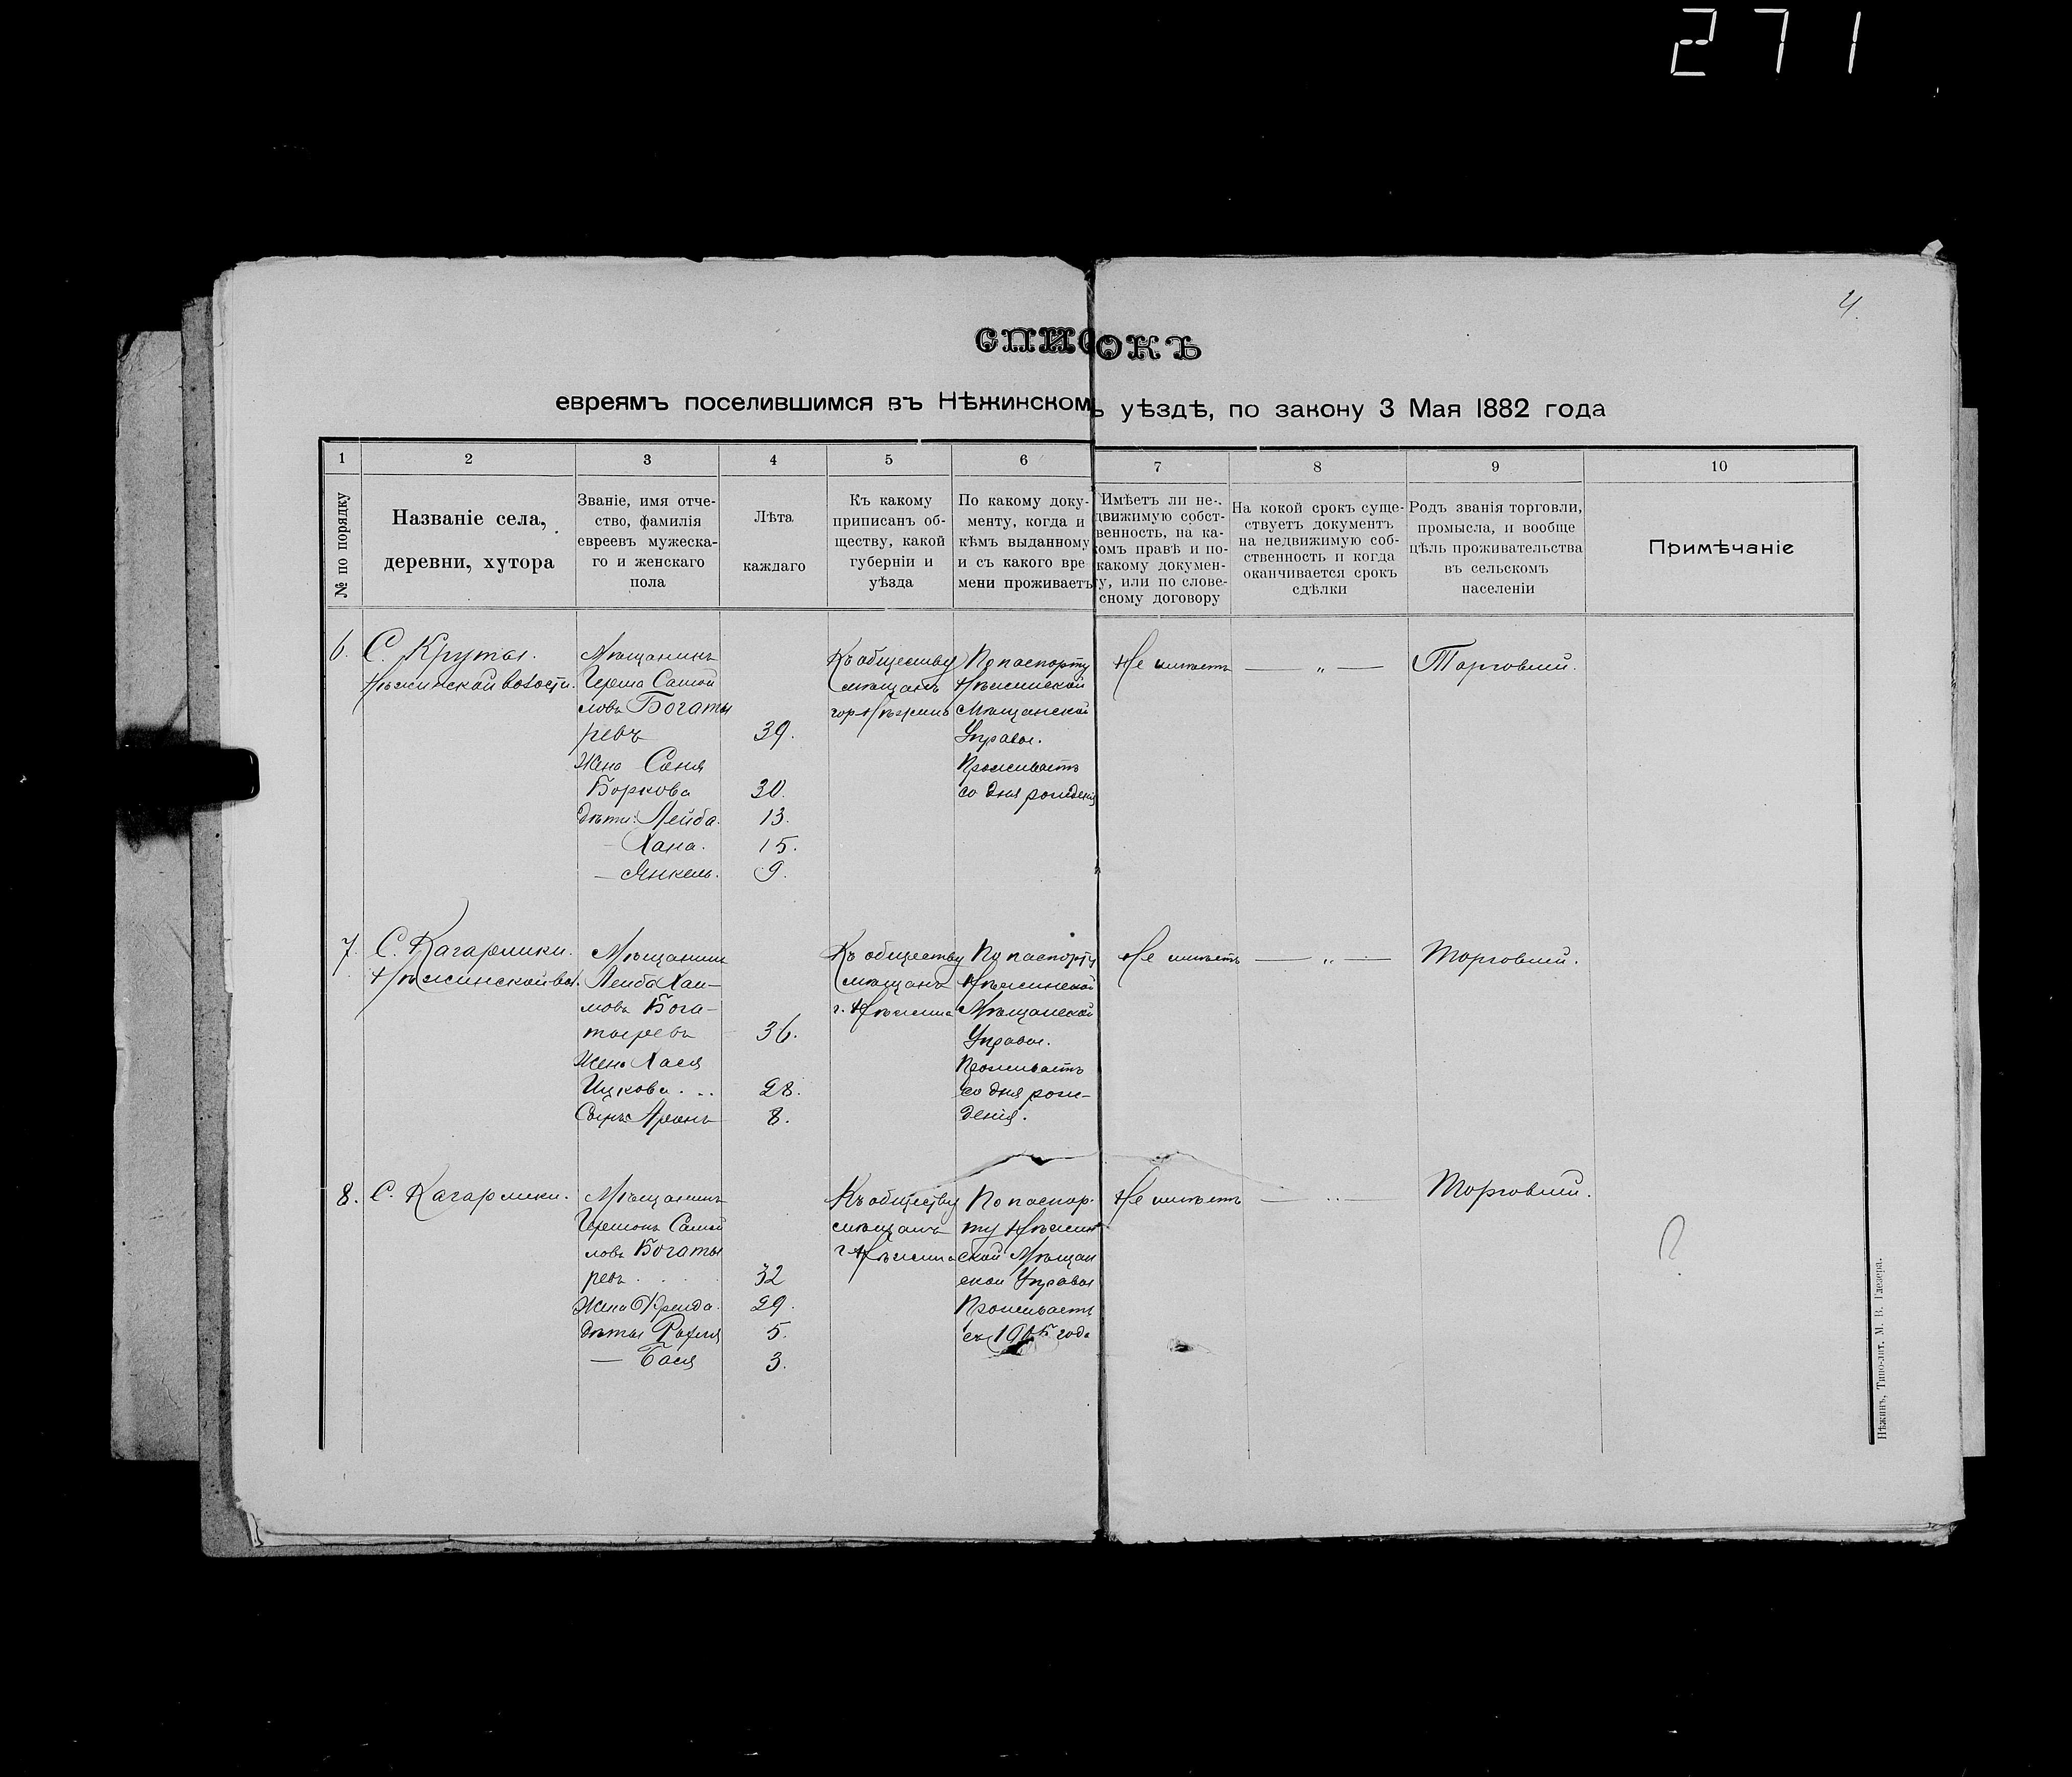 271
4.
СПИСОКЪ
евреямъ поселившимся въ Нѣжинскомъ уѣздѣ, по закону 3 Мая 1882 года
1 2 3 4 5 6 7 8 9 10
№ по порядку
Названіе села,
деревни, хутора
Званіе, имя отче-
ство, фамилія
евреевъ мужеска-
го и женскаго
пола
Лѣта
каждаго
Къ какому
приписанъ об-
ществу, какой
губерніи и
уѣзда
По какому доку-
менту, когда и
кѣмъ выданному
и съ какого вре
мени проживаетъ
Имѣетъ ли не-
движимую собст-
венность, на ка-
комъ правѣ и по-
какому докумен-
ту, или по слове-
сному договору
На кокой срокъ суще-
ствуетъ документъ
на недвижимую соб-
ственность и когда
оканчивается срокъ
сдѣлки
Родъ званія торговли,
промысла, и вообще
цѣль проживательства
въ сельскомъ
населеніи
Примѣчаніе
6.
С. Круты.
Нѣжинской волости.
Мѣщанинъ
Самой
ловъ Богаты
ревъ 39.
Жена Соня
Боркова 30.
Дѣти: Лейба. 13.
— Хана. 15.
— Янкель. 9.
Къ обществу
мѣщанъ
гор. Нѣжина
По паспорту
Нѣжинской
Мѣщанской
Управы.
Проживаетъ
со дня рожденія
Не имѣетъ
— „ —
Торговлей.
7.
С. Кагарлики.
Нѣжинской вол.
Мѣщанинъ
Лейба Хаи-
мовъ Бога-
тыревъ 36.
Жена Хася
Ицкова 28.
Сынъ Аронъ 8.
Къ обществу
мѣщанъ
г. Нѣжина
По паспорту
Нѣжинской
Мѣщанской
Управы.
Проживаетъ
со дня рож-
денія.
Не имѣетъ
— „ —
Торговлей.
8.
С. Кагарлики.
Мѣщанинъ
Самой
ловъ Богаты
ревъ 32
Жена Фрейда. 29.
Дѣти Рахля 5.
— Бася 3.
Къ обществу
мѣщанъ
г. Нѣжина
По паспор-
ту Нѣжин
ской Мѣщан
ской Управы
Проживаетъ
года
Не имѣетъ
— „ —
Торговлей.
?
Нѣжинъ, Типо-лит. М. В. Глезера.